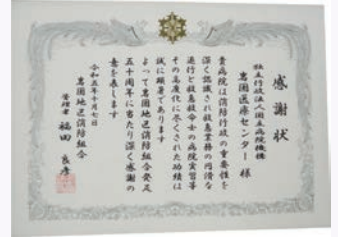 感謝状
独立行政法人国立病院機構
岩国医療センター 様
貴病院は消防行政の重要性を
深く認識され救急業務の円滑な
遂行と救急救命士の病院実習等
その高度化に尽くされた功績は
誠に顕著であります
よって岩国地区消防組合発足
五十周年に当たり深く感謝の
意を表します
令和五年十月七日
岩国地区消防組合
管理者 福田 良彦